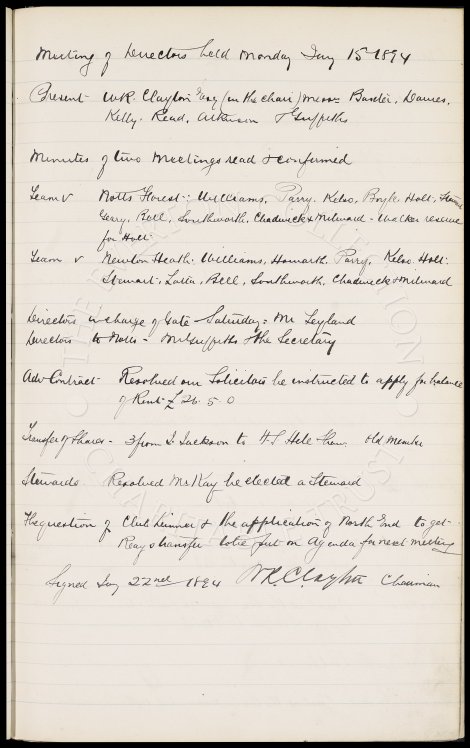 Meeting of Directors held Monday Jany 15th 1894
Present - W.R. Clayton Esq (in the chair) Messrs Baxter, Davies,
Kelly, Read, Atkinson & Griffiths
Minutes of two Meetings read & confirmed
Team v Notts Forest: Williams, Parry, Kelso, Boyle Holt,
Geary, Bell, Southworth, Chadwick & Milward - Walker reserve
for Holt
Team v Newton Heath: Williams, Howarth, Parry, Kelso Holt:
Stewart: Latta, Bell, Southworth, Chadwick & Milward
Directors in charge of Gate - Saturday: Mr Leyland
Directors to Notts - Mr Griffiths & the Secretary
Adv Contract - Resolved our Solicitors be instructed to apply for balance
of Rent £26.5.0
Transfer of Shares - 3 from J. Jackson to old member
Stewards Resolved Mr Kay be elected a Steward
The question of Club & the application of North End to get
Reay's transfer to be put on Agenda for next meeting
Signed Jany 22nd 1894 W.R. Clayton Chairman